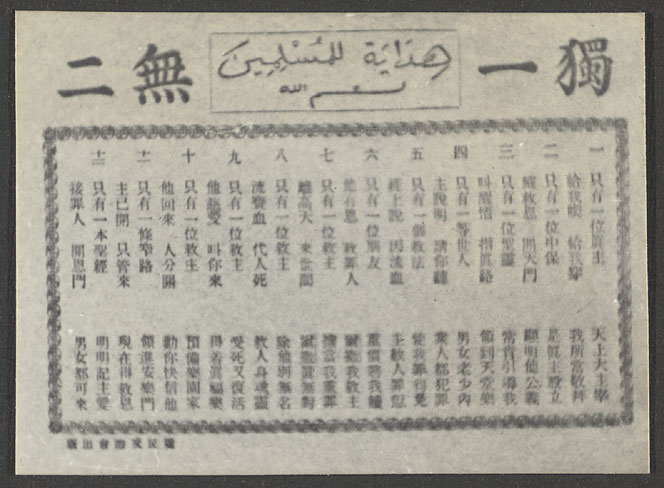 獨一 無二
هداية للمسلمين
بسم الله
一 只有一位眞主 天上大主宰
給我喫 給我穿 我所當敬拜
二 只有一位中保 是眞主設立
救恩 開天門 顯明他公義
三 只有一位聖靈 常常引導我
叫醒悟 指眞路 領到天堂樂
四 只有一等世人 男女老少內
主說明 請你聽 衆人都犯罪
五 只有一個救法 使我罪得免
經上說 因流血 主救人罪愆
六 只有一位朋友 重價將我贖
他有恩 救罪人 我救主
七 只有一位救主 擔當我重罪
離高天 來世間 無對
八 只有一位救主 除他別無名
流寶血 代人死 救人身靈
九 只有一位救主 受死又復活
他慈愛 叫你來 得着眞福樂
十 只有一位救主 預備樂園家
他回來 人分開 勸你快信他
十一 只有一條窄路 領進安樂門
主已開 只管來 現在得救恩
十二 只有一本聖經 明明記主愛
接罪人 開恩門 男女都可來